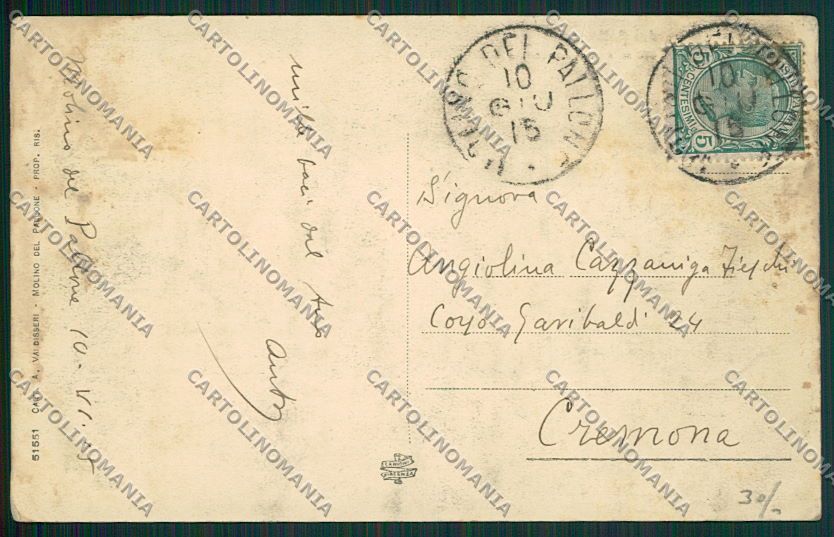 Molino del Pallone 10-VI.15
mille baci dal tuo
MOLINO DEL PALLONE
10
GIU
15
10
GIU
15
5 CENTESIMI 5
Signora
Angiolina Cazzaniga
Corso Garibaldi 24
Cremona
51551 CART. A. VALDISSERI - MOLINO DEL PALLONE - PROP. RIS.
30/-
CARTOLINOMANIA